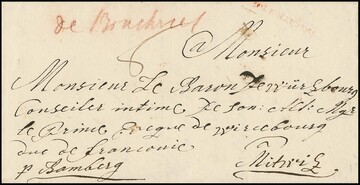 de Bruchsel
A Monsieur
Monsieur Le Baron de würzbourg
Conseiler intime de son: Alt: Mgr
le Prince Eveque de wircebourg
duc de franconie
p Bamberg Mitwiz